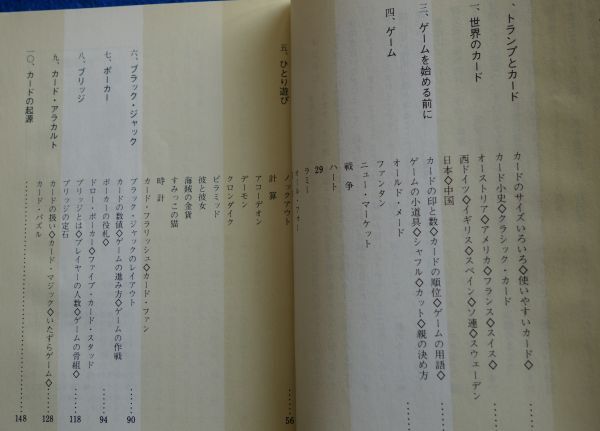 、トランプとカード
カードのサイズいろいろ◇使いやすいカード◇
カード小史◇クラシック・カード
、世界のカード
オーストリア◇アメリカ◇フランス◇スイス◇
西ドイツ◇イギリス◇スペイン◇ソ連◇スウェーデン
日本◇中国
三、ゲームを始める前に
カードの印と数◇カードの順位◇ゲームの用語◇
ゲームの小道具◇シャフル◇カット◇親の決め方
四、ゲーム
オールド・メード
ファンタン
ニュー・マーケット
戦争
ハート
29
ラミー
オール・フォー
ノックアウト
五、ひとり遊び
56
計算
アコーデオン
デーモン
クロンダイク
ピラミッド
彼と彼女
海賊の金貨
すみっこの猫
時計
カード・フラリッシュ◇カード・ファン
六、ブラック・ジャック
90
ブラック・ジャックのレイアウト
カードの数値◇ゲームの進み方◇ゲームの作戦
七、ポーカー
94
ポーカーの役札◇
ドロー・ポーカー◇ファイブ・カード・スタッド
八、ブリッジ
118
ブリッジとは◇プレイヤーの人数◇ゲームの骨組◇
ブリッジの定石
九、カード・アラカルト
128
カードの扱い◇カード・マジック◇いたずらゲーム◇
カード・パズル
一〇、カードの起源
148